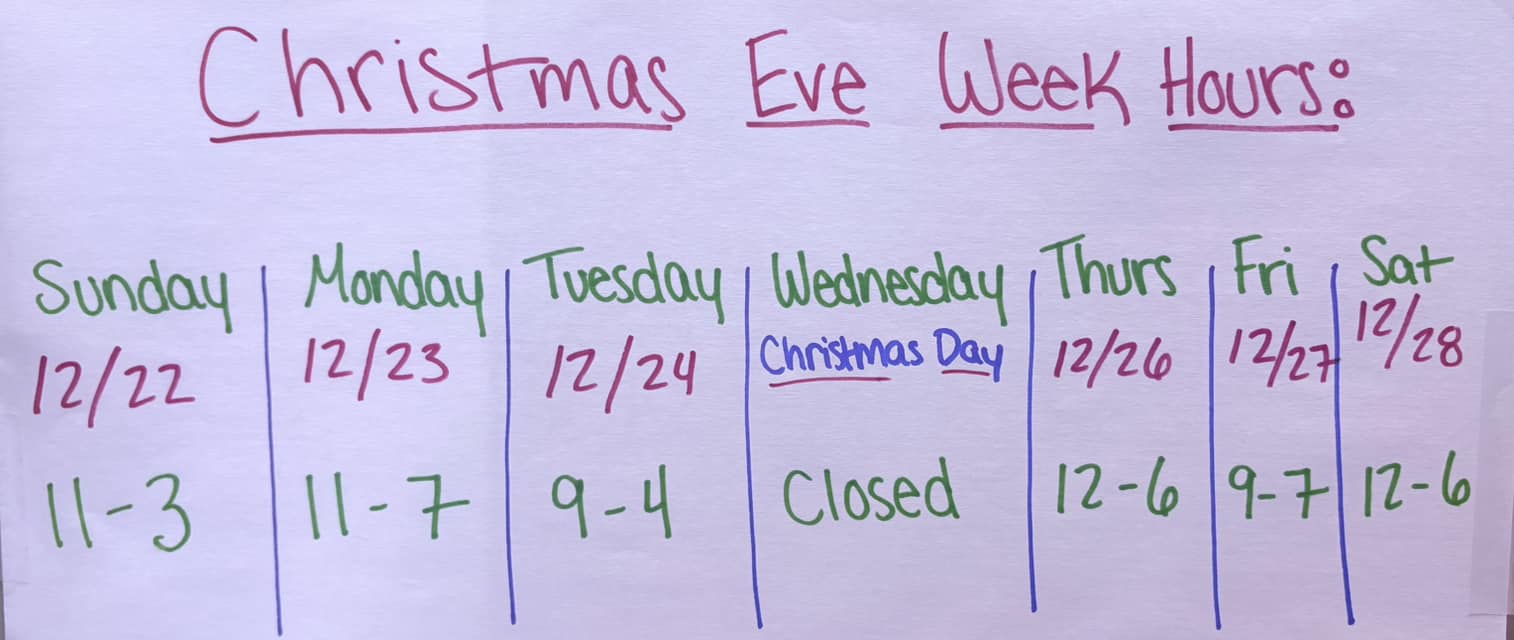 Christmas Eve Week Hours:
Sunday Monday Tuesday Wednesday Thurs Fri Sat
12/22 12/23 12/24 Christmas Day 12/26 12/27 12/28
11-3 11-7 9-4 Closed 12-6 9-7 12-6